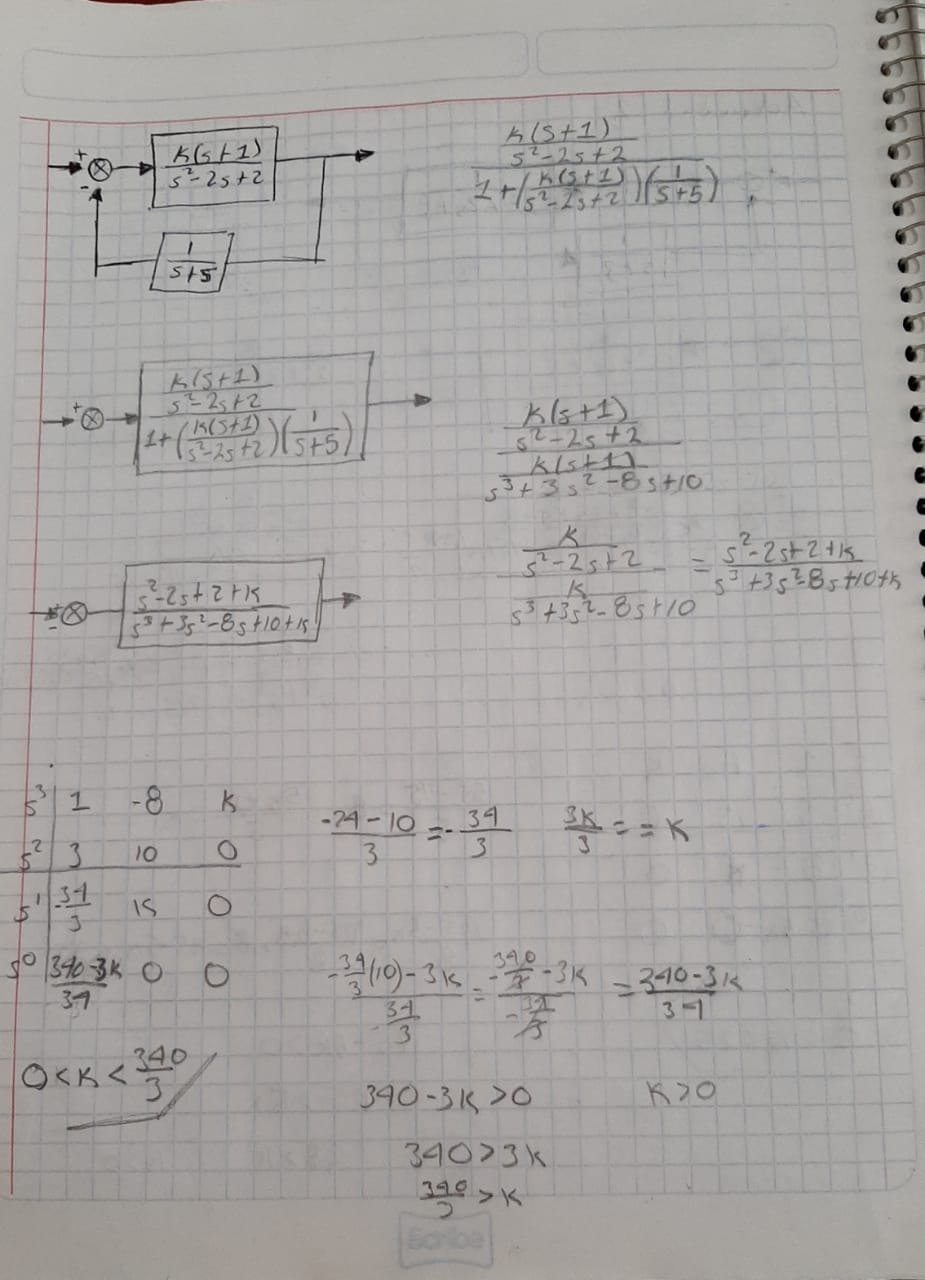 + - K(s+1)/(s²-2s+2)
1/(s+5)
(K(s+1)/(s²-2s+2))/(1+(K(s+1)/(s²-2s+2))(1/(s+5)))
+ (K(s+1)/(s²-2s+2))/(1+(K(s+1)/(s²-2s+2))(1/(s+5)))
(K(s+1)/(s²-2s+2))/(K(s+1)/(s³+3s²-8s+10))
(K/(s²-2s+2))/(K/(s³+3s²-8s+10)) = (s²-2s+2+K)/(s³+3s²-8s+10+K)
- (s²-2s+2+K)/(s³+3s²-8s+10+K)
s³ 1 -8 K
s² 3 10 0
s¹ -34/3 K 0
s⁰ (340-3K)/34 0 0
(-24-10)/3 = -34/3 3K/3 = = K
(-34/3(10)-3K)/(-34/3) = (-340/3-3K)/(-34/3) = (340-3K)/34
0<K<340/3
340-3K>0 K>0
340>3K
340/3>K
Scribe